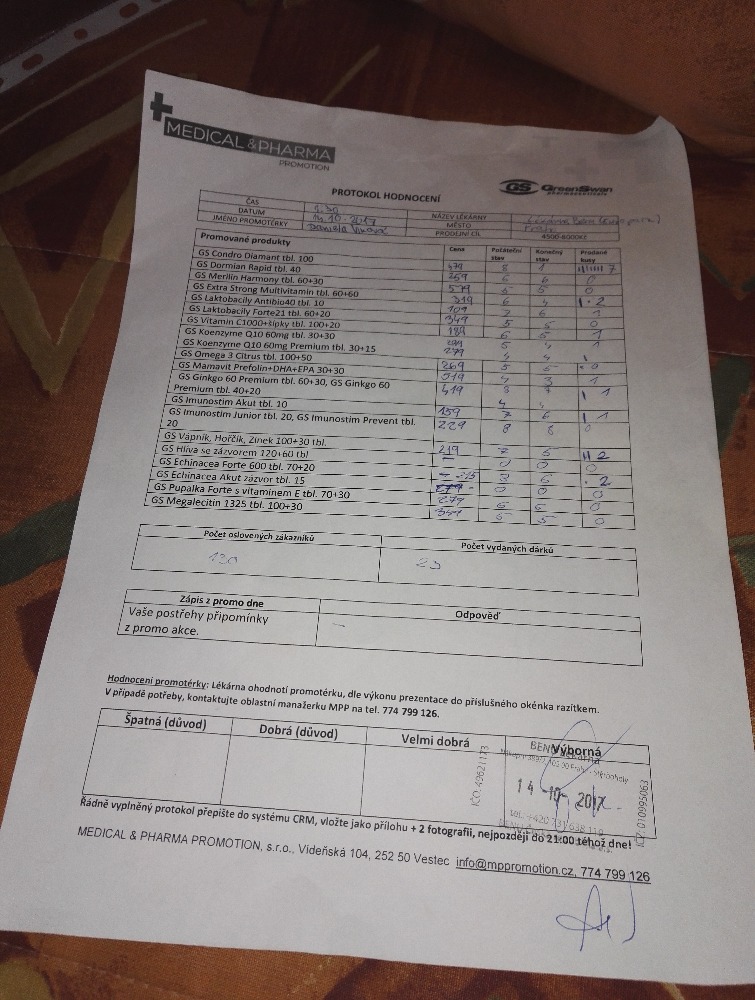 MEDICAL & PHARMA
PROMOTION
GS GreenSwan
pharmaceuticals
PROTOKOL HODNOCENÍ
ČAS
DATUM 14.10.2017 NÁZEV LÉKÁRNY
JMÉNO PROMOTÉRKY Daniela MĚSTO
PRODEJNÍ CÍL 4500-6000Kč
Promované produkty Cena Počáteční stav Konečný stav Prodané kusy
GS Condro Diamant tbl. 100 479 8 1 7
GS Dormian Rapid tbl. 40 259 6 6 0
GS Merilin Harmony tbl. 60+30 579 5 0
GS Extra Strong Multivitamin tbl. 60+60 319 6 4 2
GS Laktobacily Antibio40 tbl. 10 109 7 6 1
GS Laktobacily Forte21 tbl. 60+20 349 5 5 0
GS Vitamin C1000+šípky tbl. 100+20 189 6 5 1
GS Koenzyme Q10 60mg tbl. 30+30 5 4 1
GS Koenzyme Q10 60mg Premium tbl. 30+15 279 4 4
GS Omega 3 Citrus tbl. 100+50 269 5 5 0
GS Mamavit Prefolin+DHA+EPA 30+30 519 4 3 1
GS Ginkgo 60 Premium tbl. 60+30, GS Ginkgo 60
Premium tbl. 40+20 419 8 7 1
GS Imunostim Akut tbl. 10 159 7 6 1
GS Imunostim Junior tbl. 20, GS Imunostim Prevent tbl.
20 229 8 8 0
GS Vápník, Hořčík, Zinek 100+30 tbl. 219 7 5 2
GS Hlíva se zázvorem 120+60 tbl - 0 0 0
GS Echinacea Forte 600 tbl. 70+20
GS Echinacea Akut zázvor tbl. 15
GS Pupalka Forte s vitaminem E tbl. 70+30 279
GS Megalecitin 1325 tbl. 100+30 5 5 0
Počet oslovených zákazníků Počet vydaných dárků
130 23
Zápis z promo dne Odpověď
Vaše postřehy připomínky
z promo akce. –
Hodnocení promotérky: Lékárna ohodnotí promotérku, dle výkonu prezentace do příslušného okénka razítkem.
V případě potřeby, kontaktujte oblastní manažerku MPP na tel. 774 799 126.
Špatná (důvod) Dobrá (důvod) Velmi dobrá Výborná
14 -10- 2017
Řádně vyplněný protokol přepište do systému CRM, vložte jako přílohu + 2 fotografii, nejpozději do 21:00 téhož dne!
MEDICAL & PHARMA PROMOTION, s.r.o., Vídeňská 104, 252 50 Vestec info@mppromotion.cz, 774 799 126